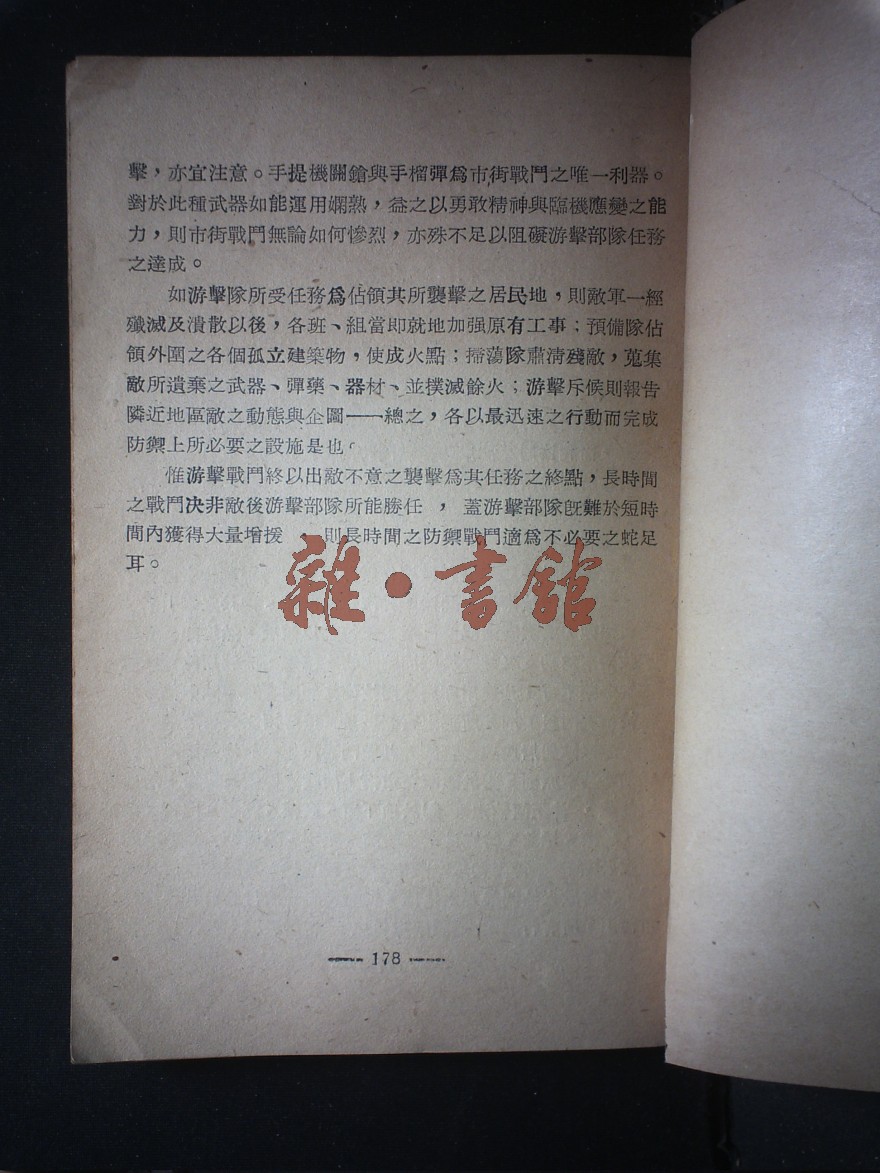 擊，亦宜注意。手提機關鎗與手榴彈爲市街戰鬥之唯一利器。
對於此種武器如能運用嫻熟，益之以勇敢精神與臨機應變之能
力，則市街戰鬥無論如何慘烈，亦殊不足以阻礙游擊部隊任務
之達成。
如游擊隊所受任務爲佔領其所襲擊之居民地，則敵軍一經
殲滅及潰散以後，各班、組當即就地加强原有工事；預備隊佔
領外圍之各個孤立建築物，使成火點；掃蕩隊肅淸殘敵，蒐集
敵所遺棄之武器、彈藥、器材、並撲滅餘火；游擊斥候則報告
隣近地區敵之動態與企圖——總之，各以最迅速之行動而完成
防禦上所必要之設施是也。
惟游擊戰鬥終以出敵不意之襲擊爲其任務之終點，長時間
之戰鬥决非敵後游擊部隊所能勝任，蓋游擊部隊旣難於短時
間內獲得大量增援，則長時間之防禦戰鬥適爲不必要之蛇足
耳。
雜·書館
178